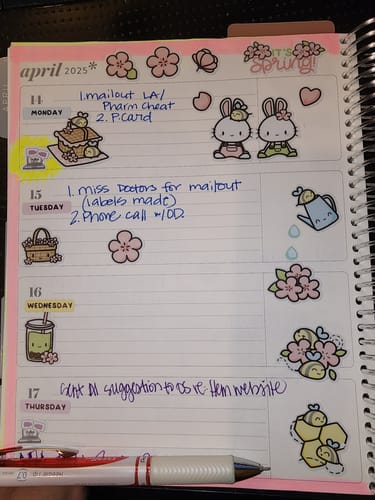 april 2025*
IT'S
Spring!
14
MONDAY
1. mailout LA/
Pharm cheat
2. P.Card
15
TUESDAY
1. Miss Doctors for mailout
(labels made)
2. Phone call
16
WEDNESDAY
17
sent AI suggestion to OS re: Hem website
THURSDAY
0.7